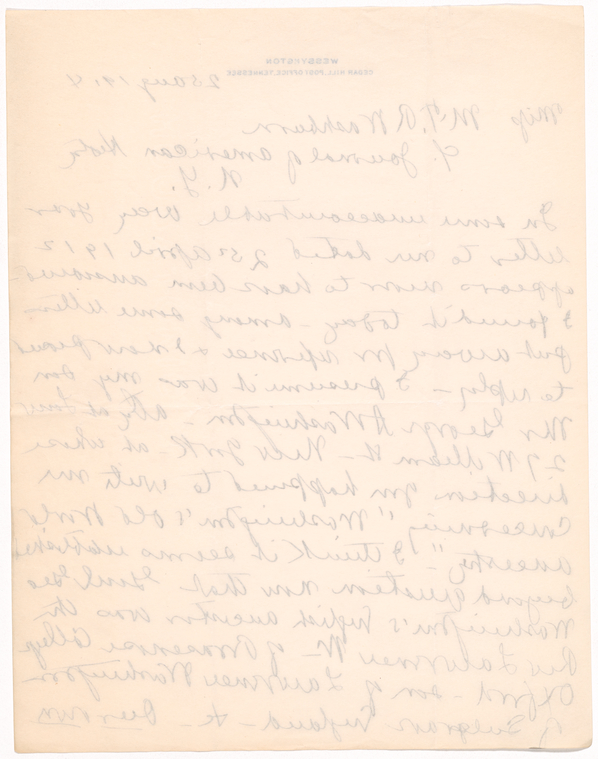 WESSYNGTON
CEDAR HILL, POST OFFICE, TENNESSEE
25 Aug 1914
Miss M. T. R. Washburn
c/. Journal of American Hist'y
N. Y.
In some unaccountable way your
letter to me dated 25th April 1912
appears never to have been answered
I found it today - among some letters
put away for reference & I now proceed
to reply - I presume it was my son
Mr George A Washington - atty at law
27 William St - New York - at whose
direction you happened to write me
concerning "Washington's old World
ancestry" - I think it seems established
beyond question now that Genl Geo
Washington's English ancestor was the
Rev Lawrence W - of Brasenose College
Oxford - son of Lawrence Washington
of Sulgrave England - &